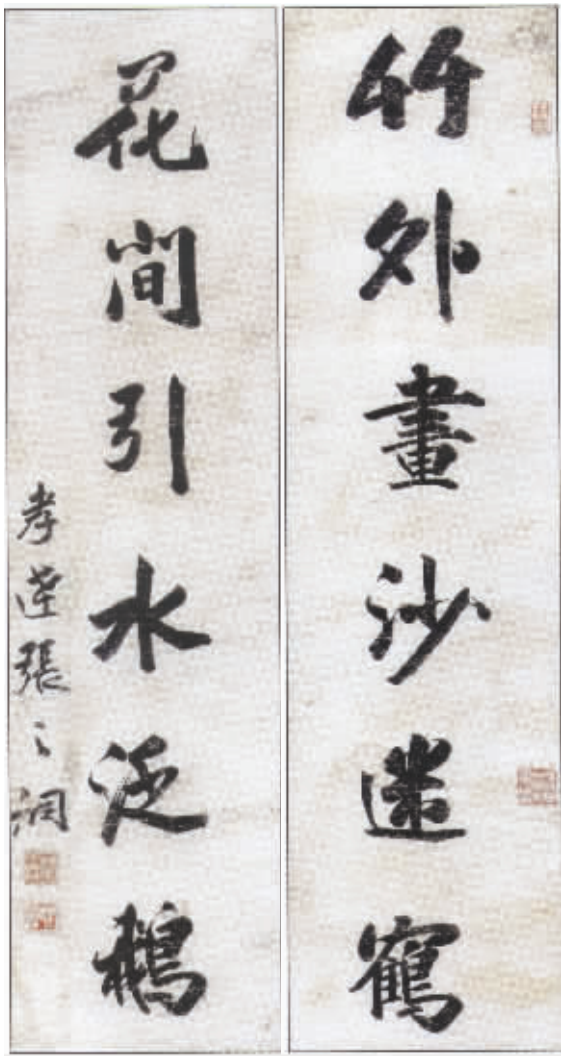 竹外畫沙迷鶴
花間引水泛鵝
孝達張之洞